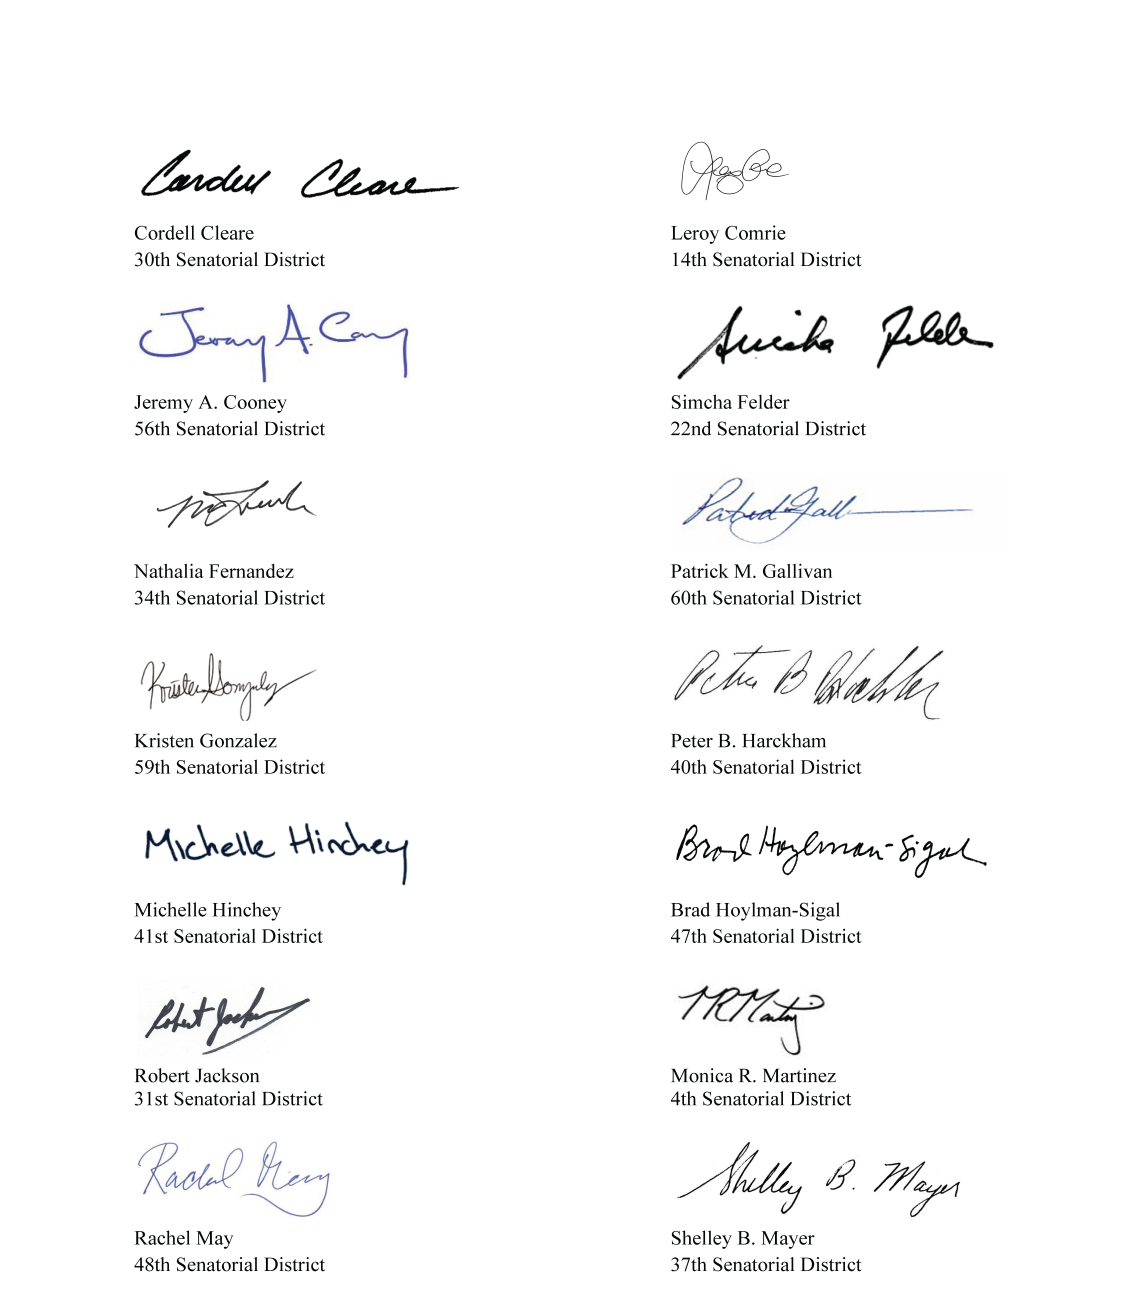 Cordell Cleare
Cordell Cleare
30th Senatorial District
Leroy Comrie
14th Senatorial District
Jeremy A. Cooney
Jeremy A. Cooney
56th Senatorial District
Simcha Felder
Simcha Felder
22nd Senatorial District
Nathalia Fernandez
34th Senatorial District
Patrick M. Gallivan
60th Senatorial District
Kristen Gonzalez
Kristen Gonzalez
59th Senatorial District
Peter B Harckham
Peter B. Harckham
40th Senatorial District
Michelle Hinchey
Michelle Hinchey
41st Senatorial District
Brad Hoylman-Sigal
Brad Hoylman-Sigal
47th Senatorial District
Robert Jackson
Robert Jackson
31st Senatorial District
MRMartinez
Monica R. Martinez
4th Senatorial District
Rachel May
Rachel May
48th Senatorial District
Shelley B. Mayer
Shelley B. Mayer
37th Senatorial District